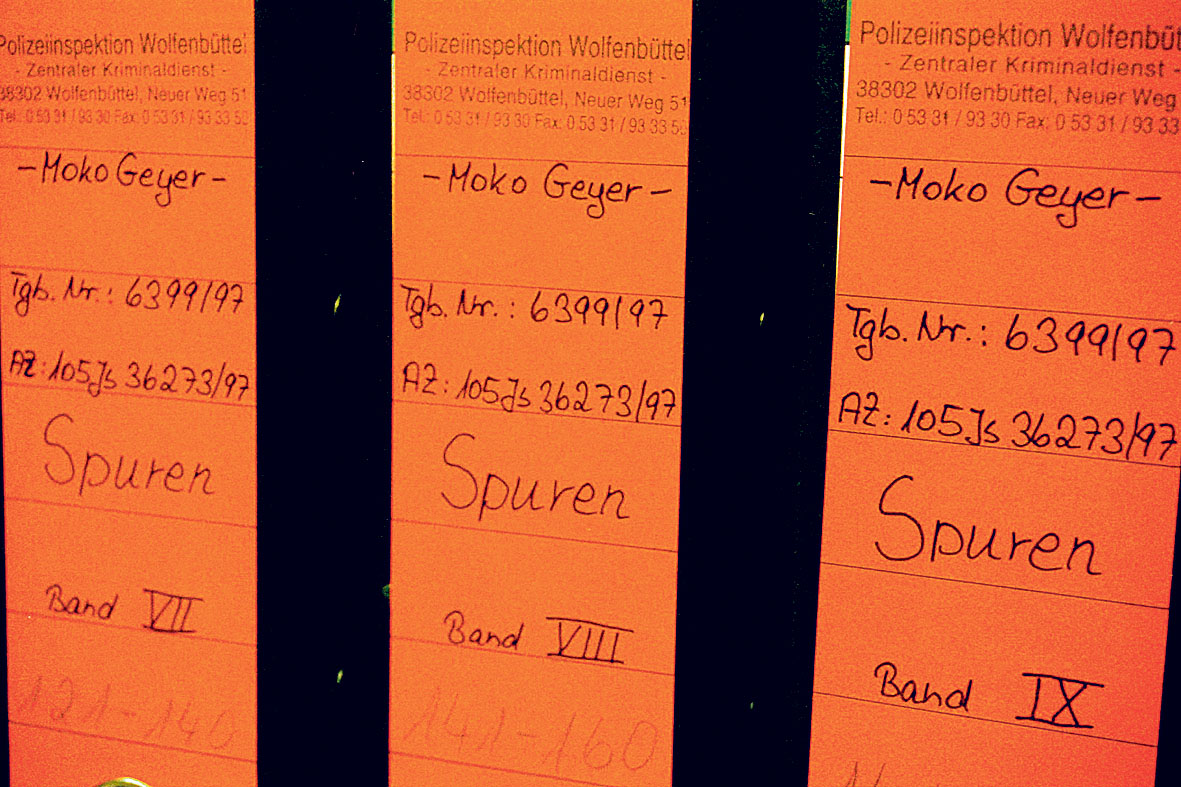 Polizeiinspektion Wolfenbüttel
- Zentraler Kriminaldienst -
38302 Wolfenbüttel, Neuer Weg 51
Tel.: 0 53 31 / 93 30 Fax: 0 53 31 / 93 33 5
-Moko Geyer-
Tgb. Nr.: 6399/97
AZ: 105Js 36273/97
Spuren
Band VII
121-140
Polizeiinspektion Wolfenbüttel
- Zentraler Kriminaldienst -
38302 Wolfenbüttel, Neuer Weg 51
Tel.: 0 53 31 / 93 30 Fax: 0 53 31 / 93 33 5
-Moko Geyer-
Tgb. Nr.: 6399/97
AZ: 105Js 36273/97
Spuren
Band VIII
141-160
Polizeiinspektion Wolfenbüt
- Zentraler Kriminaldienst -
38302 Wolfenbüttel, Neuer Weg
Tel.: 0 53 31 / 93 30 Fax: 0 53 31 / 93 33
-Moko Geyer-
Tgb. Nr.: 6399/97
AZ: 105Js 36273/97
Spuren
Band IX